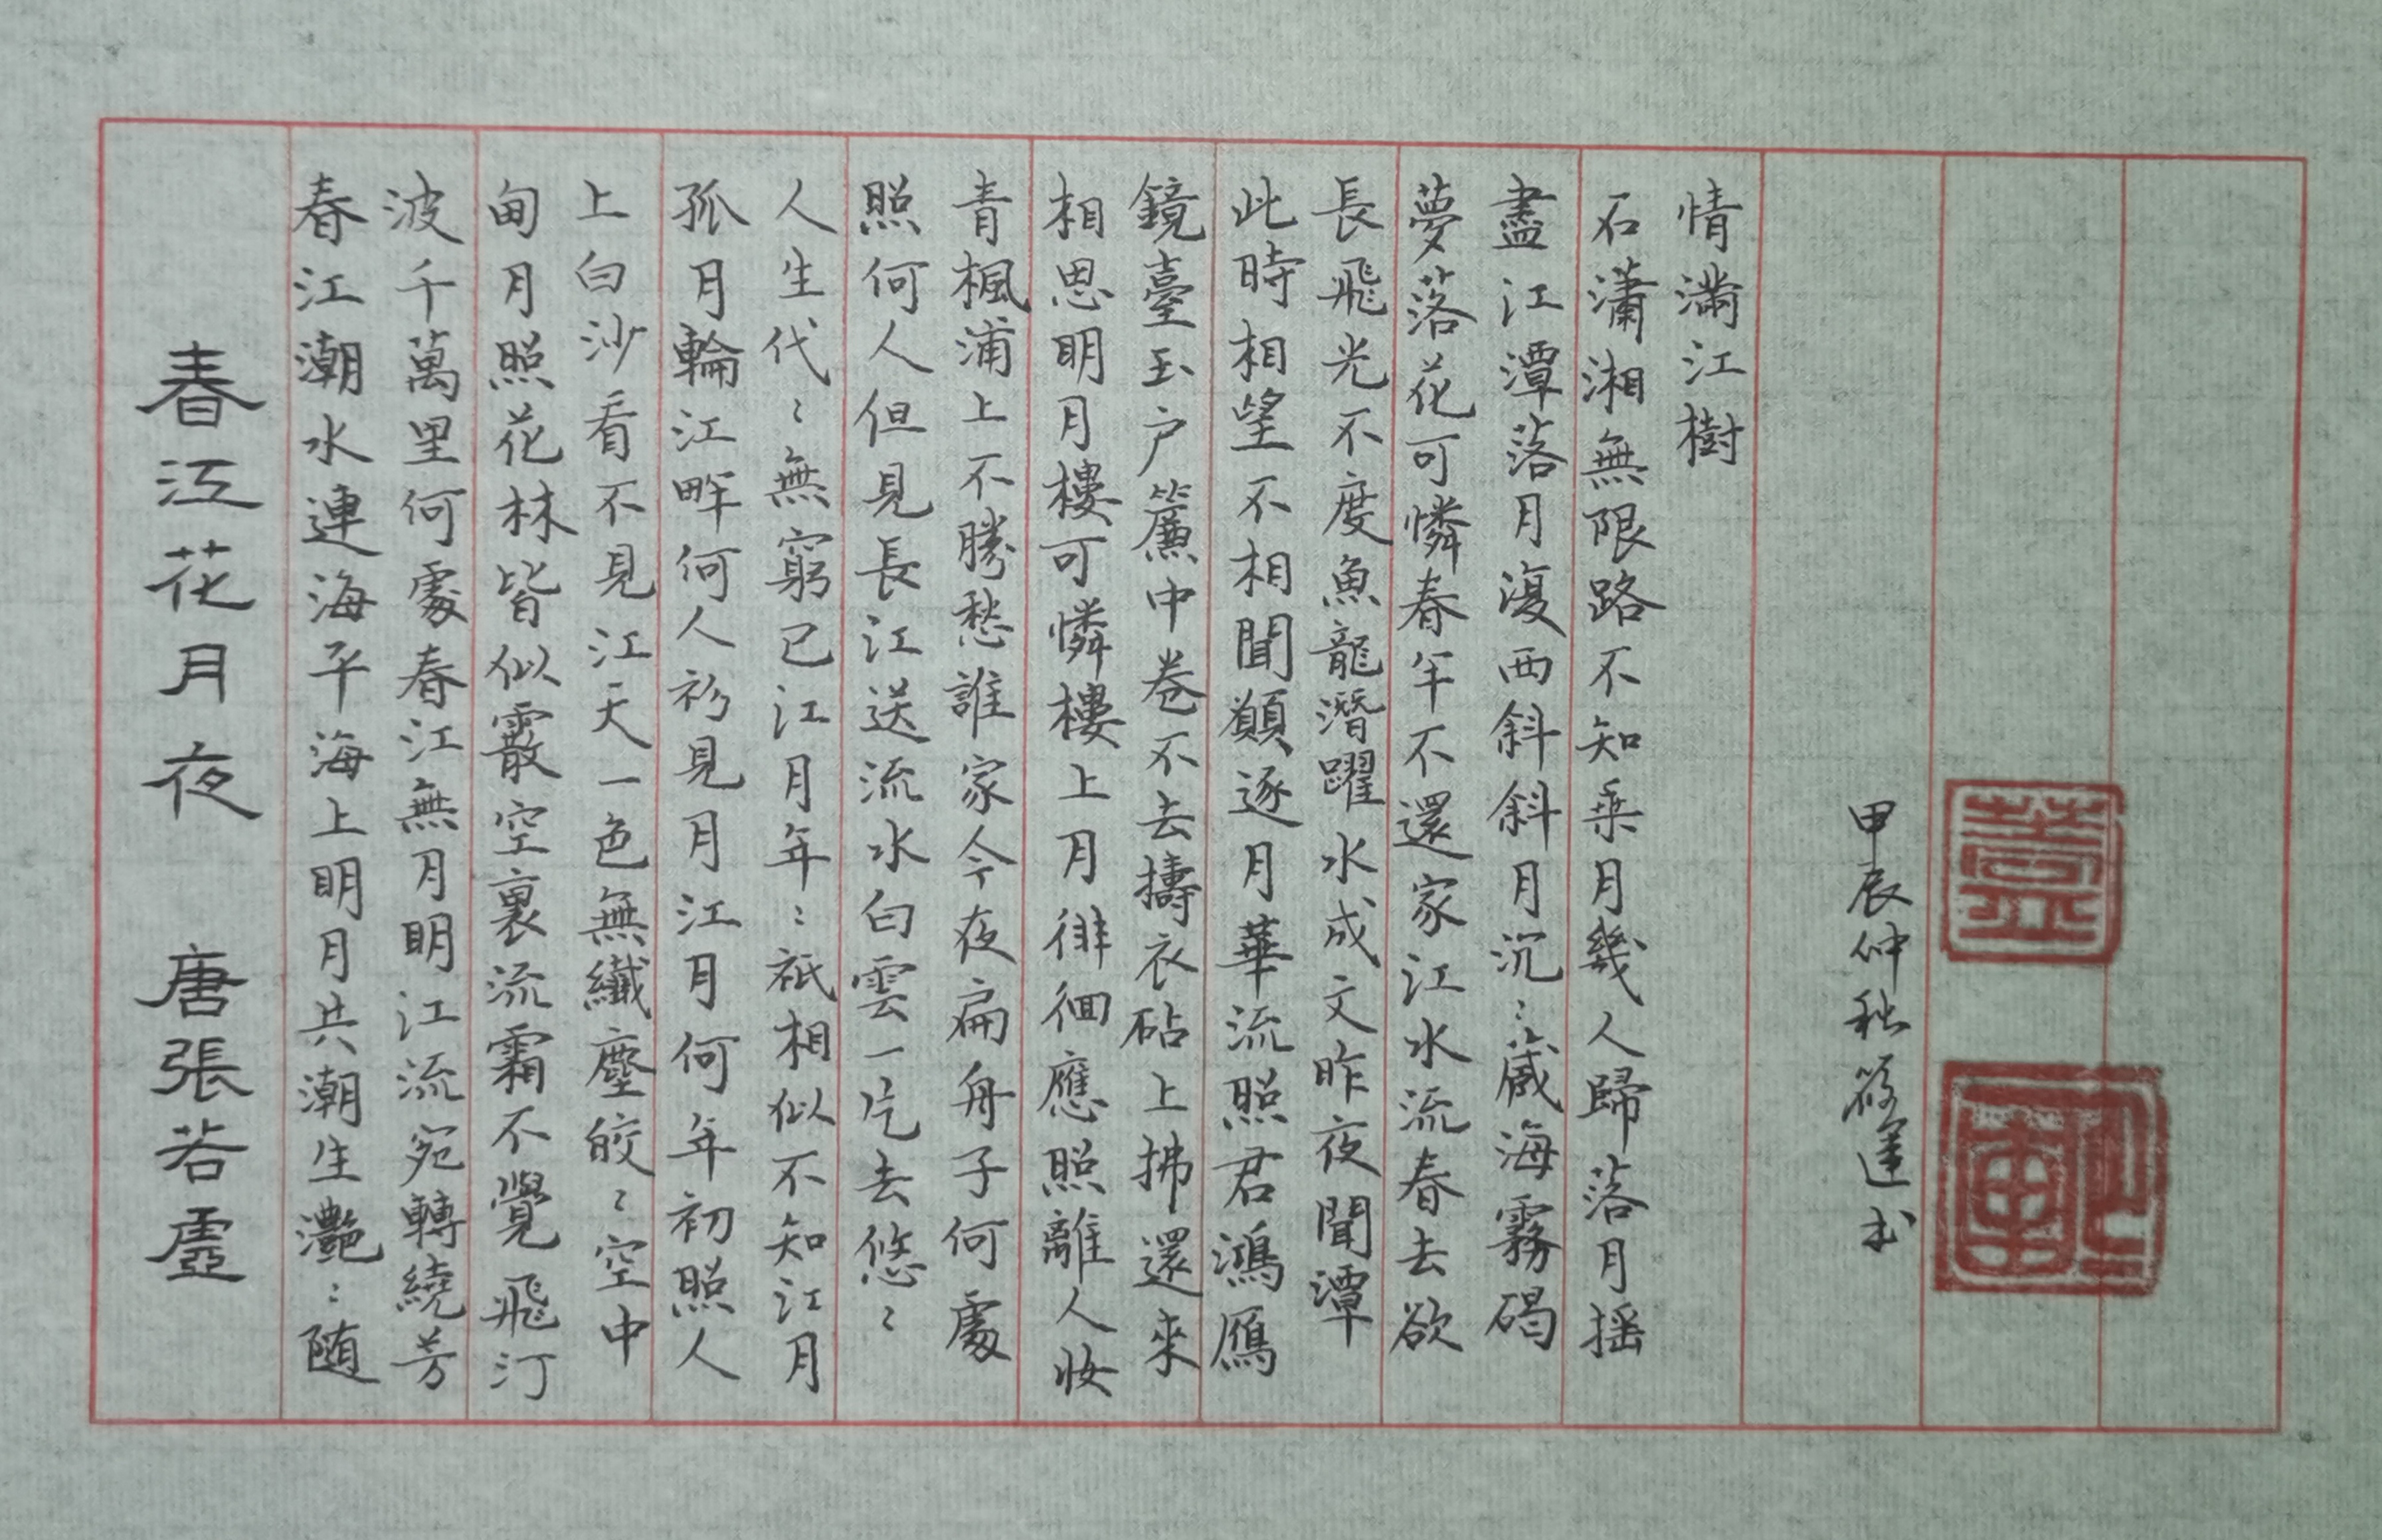 春江花月夜 唐張若虛
春江潮水連海平海上明月共潮生灩〻随
波千萬里何處春江無月明江流宛轉繞芳
甸月照花林皆似霰空裏流霜不覺飛汀
上白沙看不見江天一色無纖塵皎〻空中
孤月輪江畔何人初見月江月何年初照人
人生代〻無窮已江月年〻祗相似不知江月
照何人但見長江送流水白雲一片去悠〻
青楓浦上不勝愁誰家今夜扁舟子何處
相思明月樓可憐樓上月徘徊應照離人妝
鏡臺玉户簾中卷不去擣衣砧上拂還來
此時相望不相聞願逐月華流照君鴻鴈
長飛光不度魚龍潛躍水成文昨夜聞潭
夢落花可憐春半不還家江水流春去欲
盡江潭落月復西斜斜月沉〻藏海霧碣
石瀟湘無限路不知乘月幾人歸落月摇
情滿江樹
甲辰仲秋筱蓮书